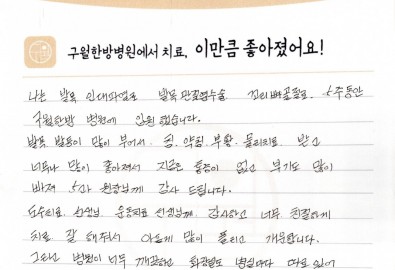 구월한방병원에서 치료, 이만큼 좋아졌어요!
나는 발목 인대파열로 발목 수술 꼬리뼈골절로 5주동안
구월한방 병원에 입원 했습니다.
발목 발등이 많이 부어서 침, 약침, 부항, 물리치료 받고
너무나 많이 좋아져서 지금은 통증이 없고 부기도 많이
빠져 원장님께 감사 드립니다.
도수치료 선생님 운동치료 선생님께 감사하고 너무 친절하게
치료 잘 해주셔서 아픈게 많이 풀리고 개운합니다.
그리고 병원이 너무 깨끗하고 화장실도 병실마다 따로 있어